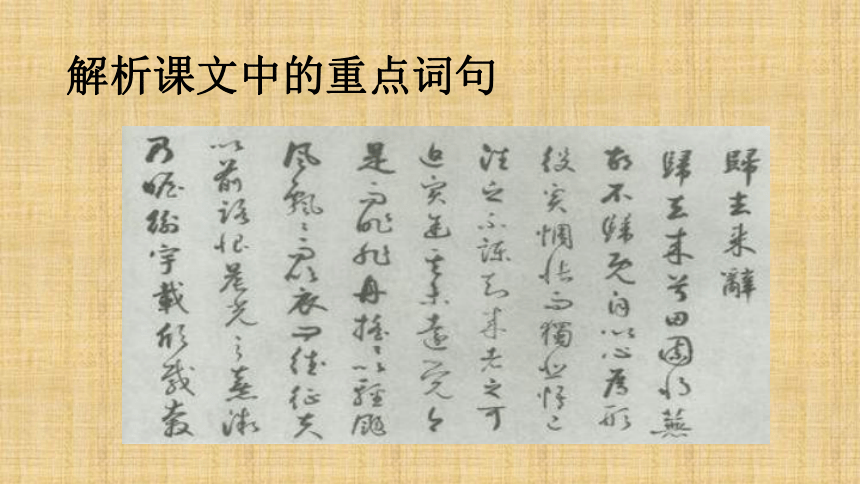 解析课文中的重点词句
歸去来辭
歸去来兮田園将蕪
不歸既自以心為形
役奚惆悵而獨悲悟已
往之不諫知来者之可
追實迷其未遠覺今
是而昨非舟揺々以輕颺
風飄々而吹衣问征夫
以前路恨晨光之熹微
乃瞻衡宇載欣載奔